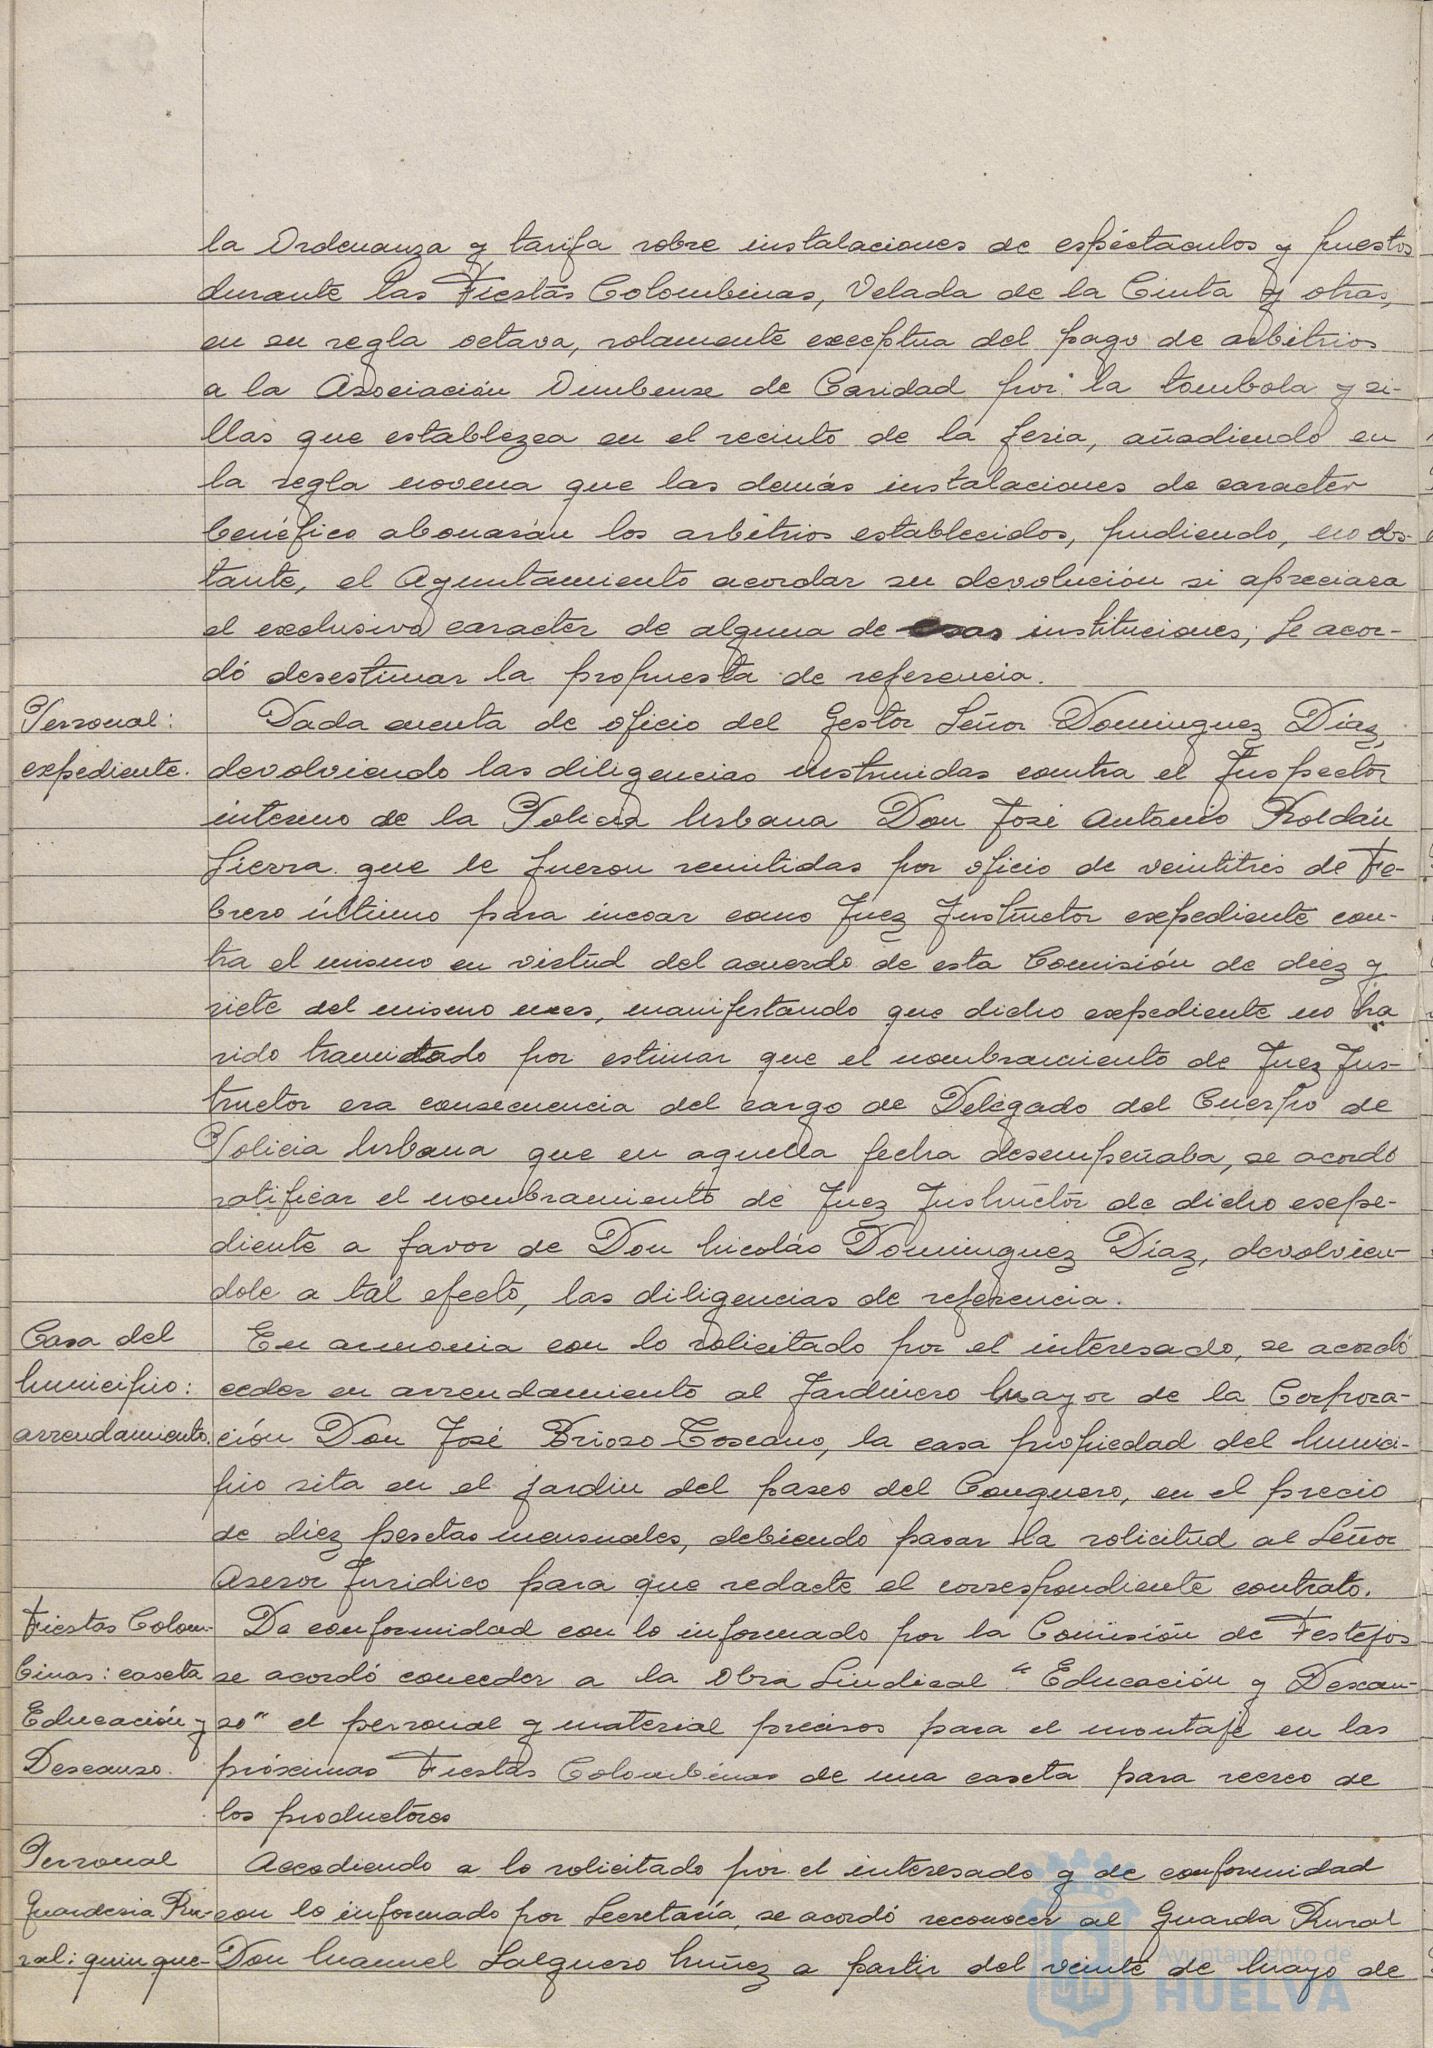 la Ordenanza y tarifa sobre instalaciones de espéctaculos y puestos
durante las Fiestas Colombinas, Velada de la Cinta y otras,
en su regla octava, solamente exceptua del pago de arbitrios
a la Asociación Onubense de Caridad por la tombola y si-
llas que establezca en el recinto de la feria, añadiendo en
la regla novena que las demás instalaciones de caracter
benéfico abonarán los arbitrios establecidos, pudiendo, no obs-
tante, el Ayuntamiento acordar su devolución si apreciara
el exclusivo caracter de alguna de esas instituciones; Se acor-
dó desestimar la propuesta de referencia.
Personal:
expediente.
Dada cuenta de oficio del Gestor Señor Dominguez Díaz,
devolviendo las diligencias instruidas contra el Inspector
interino de la Policia Urbana Don José Antonio Roldán
Sierra que le fueron remitidas por oficio de veintitrés de Fe-
brero último para incoar como Juez Instructor expediente con-
tra el mismo en virtud del acuerdo de esta Comisión de diez y
siete del mismo mes, manifestando que dicho expediente no ha
sido tramitado por estimar que el nombramiento de Juez Ins-
tructor era consecuencia del cargo de Delegado del Cuerpo de
Policia Urbana que en aquella fecha desempeñaba, se acordó
ratificar el nombramiento de Juez Instructor de dicho expe-
diente a favor de Don Nicolás Dominguez Díaz, devolvien-
dole a tal efecto, las diligencias de referencia.
Casa del
Municipio:
arrendamiento.
En armonia con lo solicitado por el interesado, se acordó
ceder en arrendamiento al Jardinero Mayor de la Corpora-
ción Don José Brioso Toscano, la casa propiedad del Munici-
pio sita en el jardin del paseo del Conquero, en el precio
de diez pesetas mensuales, debiendo pasar la solicitud al Señor
Asesor Juridico para que redacte el correspondiente contrato.
Fiestas Colom-
binas: caseta
Educación y
Descanso.
De conformidad con lo informado por la Comisión de Festejos
se acordó conceder a la Obra Sindical "Educación y Descan-
so" el personal y material precisos para el montaje en las
próximas Fiestas Colombinas de una caseta para recreo de
los productores
Personal
Guarderia Ru-
ral: quinque-
Accediendo a lo solicitado por el interesado y de conformidad
con lo informado por Secretaría, se acordó reconocer al Guarda Rural
Don Manuel Salguero Núñez a partir del veinte de Mayo de
Ayuntamiento de
HUELVA